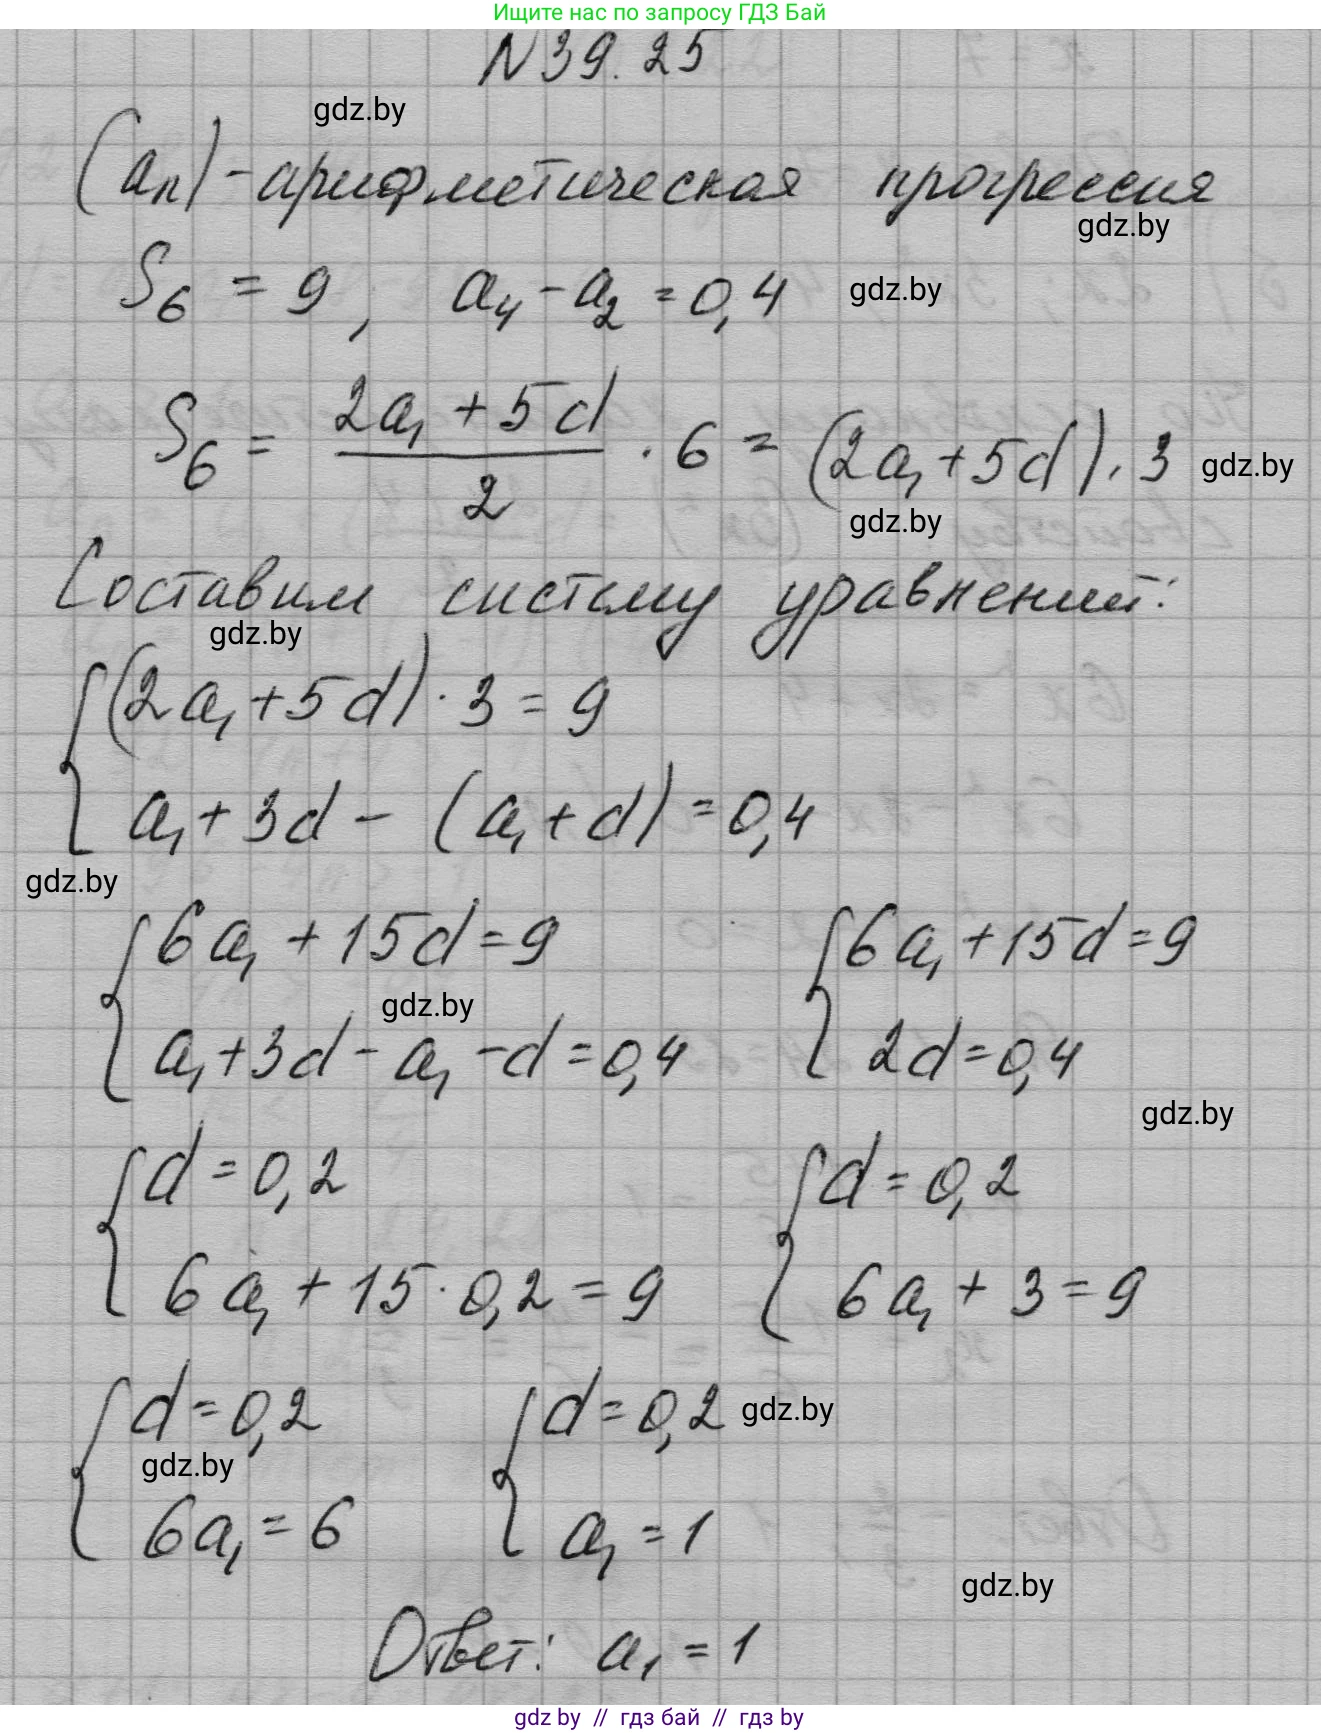 Ищите нас по запросу ГДЗ Бай
N 39.25
gdz.by
(aₙ) - арифметическая прогрессия
gdz.by
S₆ = 9, a₄ - a₂ = 0,4 gdz.by
S₆ = (2a₁ + 5d)/2 · 6 = (2a₁ + 5d) · 3 gdz.by
gdz.by
Составим систему уравнений:
gdz.by
{ (2a₁ + 5d) · 3 = 9
a₁ + 3d - (a₁ + d) = 0,4
gdz.by
{ 6a₁ + 15d = 9 { 6a₁ + 15d = 9
gdz.by
a₁ + 3d - a₁ - d = 0,4 2d = 0,4
gdz.by
{ d = 0,2 { d = 0,2
6a₁ + 15 · 0,2 = 9 6a₁ + 3 = 9
{ d = 0,2 { d = 0,2 gdz.by
gdz.by
6a₁ = 6 a₁ = 1
gdz.by
Ответ: a₁ = 1
gdz by // гдз бай // гдз by